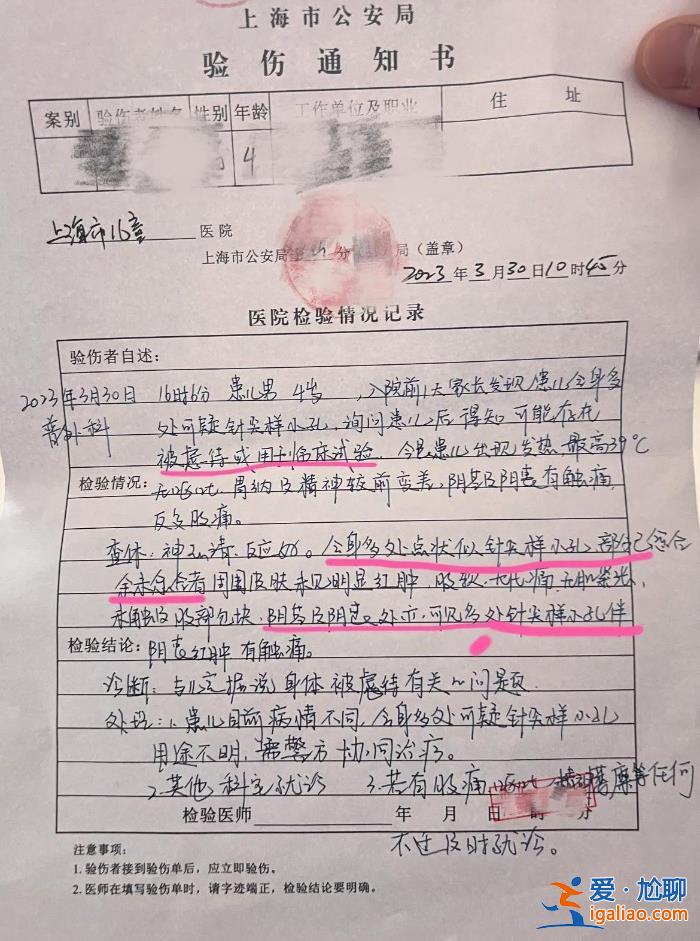 上海市公安局
验伤通知书
案别 验伤者姓名 性别 年龄 工作单位及职业 住址
4
上海市16童 医院
上海市公安局 分 局(盖章)
2023年3月30日10时45分
医院检验情况记录
验伤者自述:
2023年3月30日 16时6分 患儿男 4岁 ,入院前1天家长发现患儿全身多
普外科 处可疑针尖样小孔,询问患儿后得知可能存在
被虐待或用于临床试验 患儿出现发热 最高39℃
检验情况: 胃纳及精神较前变差,阴茎及阴囊有触痛,
反复腹痛。
查体:神 清,反应 。全身多处点状似针尖样小孔 部分已愈合
余未愈合者 周围皮肤未见明显红肿 腹软
未触及腹部包块,阴茎及阴囊处亦可见多处针尖样小孔伴
检验结论: 阴囊红肿 有触痛。
诊断:与 据说身体被虐待有关的问题
处理:1.患儿目前病情不同,全身多处可疑针尖样小孔
用途不明,需警方协同治疗。
2.其他科室就诊 3.若有腹痛 等任何
检验医师 年 月 日 时 分
不适及时就诊。
注意事项:
1.验伤者接到验伤单后,应立即验伤。
2.医师在填写验伤单时,请字迹端正,检验结论要明确。
爱·尬聊
igaliao.com